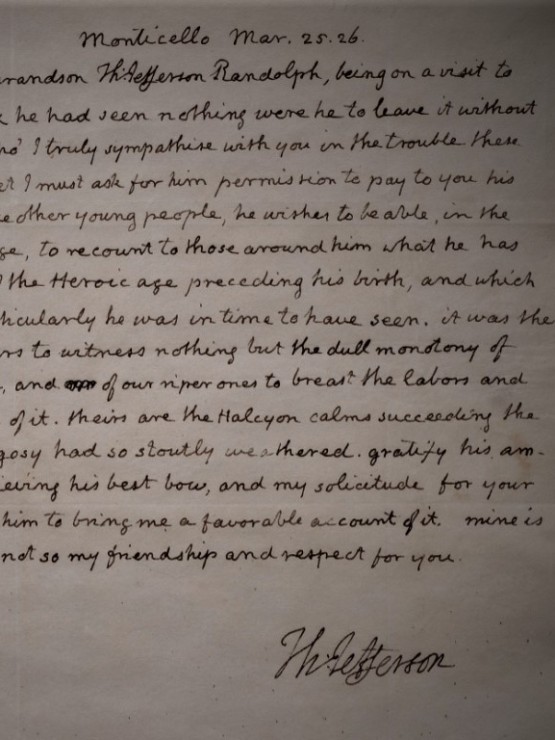 Monticello Mar. 25. 26.
randson Th: Jefferson Randolph, being on a visit to
he had seen nothing were he to leave it without
ho' I truly sympathise with you in the trouble these
et I must ask for him permission to pay to you his
e other young people, he wishes to be able, in the
ge, to recount to those around him what he has
the Heroic age preceding his birth, and which
ticularly he was in time to have seen. it was the
rs to witness nothing but the dull monotony of
, and of our riper ones to breast the labors and
of it. theirs are the Halcyon calms succeeding the
gosy had so stoutly weathered. gratify his am-
ieving his best bow, and my solicitude for your
him to bring me a favorable account of it. mine is
not so my friendship and respect for you.
Th: Jefferson